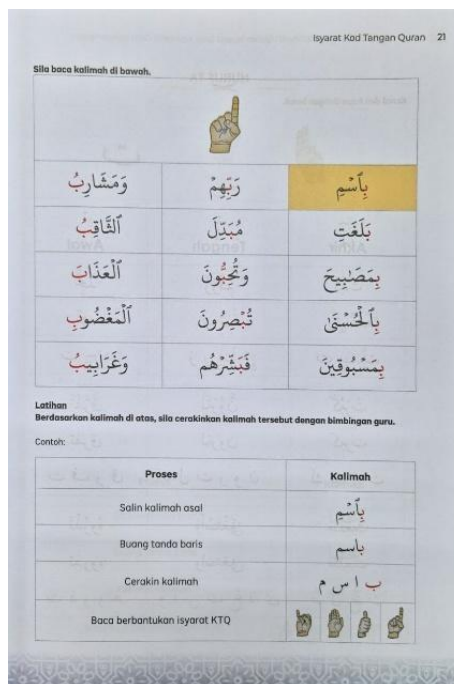 Isyarat Kod Tangan Quran 21
Sila baca kalimah di bawah.
بِٱسۡمِ رَبِّهِمۡ وَمَشَارِبُ
بَلَغَتِ مُبَدِّلَ ٱلثَّاقِبُ
بِمَصَٰبِيحَ وَتُحِبُّونَ ٱلۡعَذَابَ
بِٱلۡحُسۡنَى تُبۡصِرُونَ ٱلۡمَغۡضُوبِ
بِمَسۡبُوقِينَ فَبَشِّرۡهُم وَغَرَابِيبُ
Latihan
Berdasarkan kalimah di atas, sila cerakinkan kalimah tersebut dengan bimbingan guru.
Contoh:
Proses Kalimah
Salin kalimah asal بِٱسۡمِ
Buang tanda baris باسم
Cerakin kalimah ب ا س م
Baca berbantukan isyarat KTQ